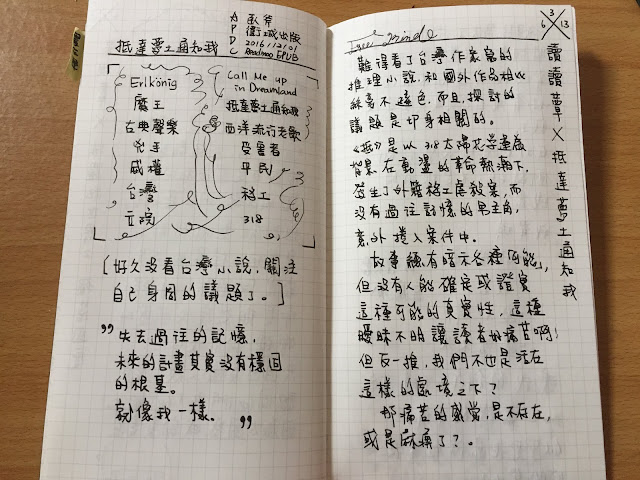 抵達夢土通知我
A 臥斧
P 衛城出版
D 2016/12/01
C Readmoo EPUB
Erlkönig
魔王
古典聲樂
兇手
威權
台灣
立院
Call Me up
in Dreamland
抵達夢土通知我
西洋流行老歌
受害者
平民
移工
318
[好久沒看台灣小說,關注
自己身周的議題了。]
"失去過往的記憶,
未來的計畫其實沒有穩固
的根基。
就像我一樣。"
3
6 13
讀讀蕈X抵達夢土通知我
難得看了台灣作家寫的
推理小說,和國外作品相比
絲毫不遜色,而且,探討的
議題是切身相關的。
《抵》是以318太陽花學運為
背景,在動盪的革命熱潮下,
發生了外籍移工虐殺案,而
沒有過往記憶的男主角,
意外捲入案件中。
故事雖有暗示各種可能,
但沒有人能確定或證實
這種可能的真實性,這種
曖昧不明讓讀者好痛苦啊!
但反一推,我們不也是活在
這樣的處境之下?
那痛苦的感覺,是不存在,
或是麻痺了?。